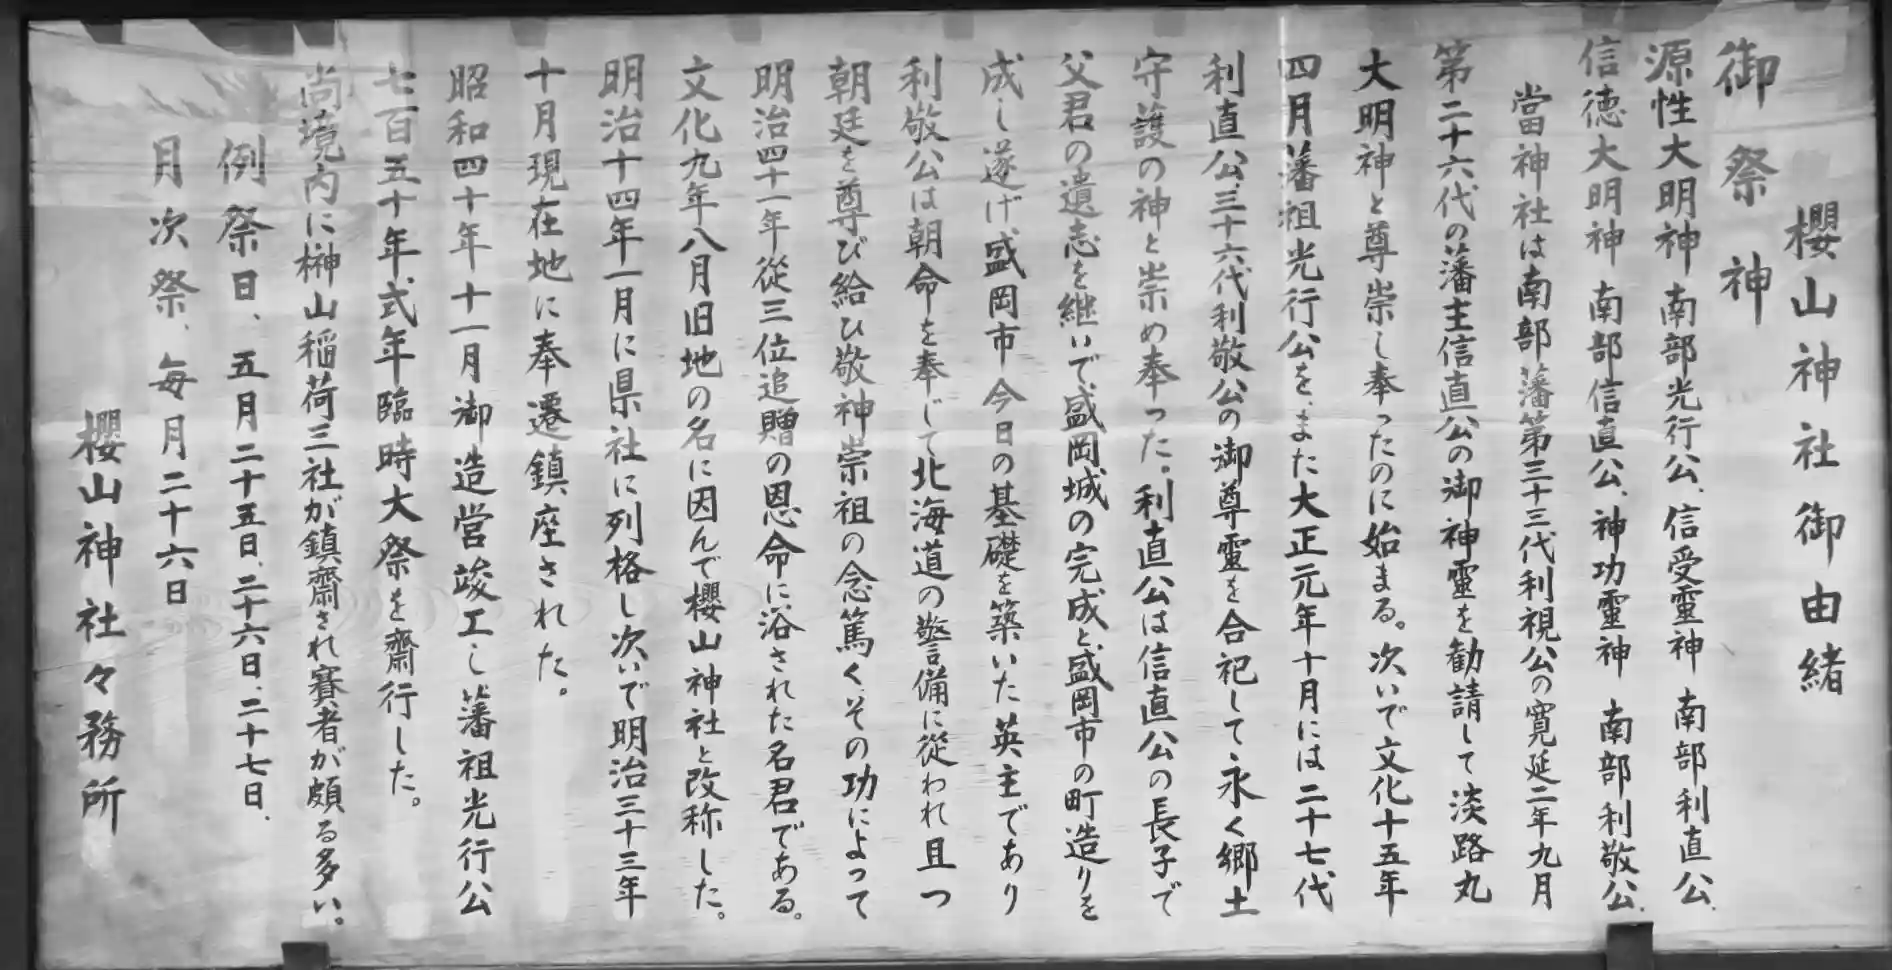 櫻山神社御由緒
御祭神
源性大明神 南部光行公、信受靈神 南部利直公、
信徳大明神 南部信直公、神功靈神 南部利敬公、
當神社は南部藩第三十三代利視公の寛延二年九月
第二十六代の藩主信直公の御神靈を勧請して淡路丸
大明神と尊崇し奉ったのに始まる。次いで文化十五年
四月藩祖光行公を、また大正元年十月には二十七代
利直公、三十六代利敬公の御尊靈を合祀して永く郷土
守護の神と崇め奉った。利直公は信直公の長子で
父君の遺志を継いで盛岡城の完成と盛岡市の町造りを
成し遂げ盛岡市今日の基礎を築いた英主であり
利敬公は朝命を奉じて北海道の警備に從われ且つ
朝廷を尊び給ひ敬神崇祖の念篤く、その功によって
明治四十一年從三位追贈の恩命に浴された名君である。
文化九年八月旧地の名に因んで櫻山神社と改称した。
明治十四年一月に県社に列格し次いで明治三十三年
十月現在地に奉遷鎮座された。
昭和四十年十一月御造営竣工し藩祖光行公
七百五十年式年臨時大祭を齋行した。
尚境内に榊山稲荷三社が鎮齋され賽者が頗る多い。
例祭日、五月二十五日、二十六日、二十七日、
月次祭、毎月二十六日
櫻山神社々務所